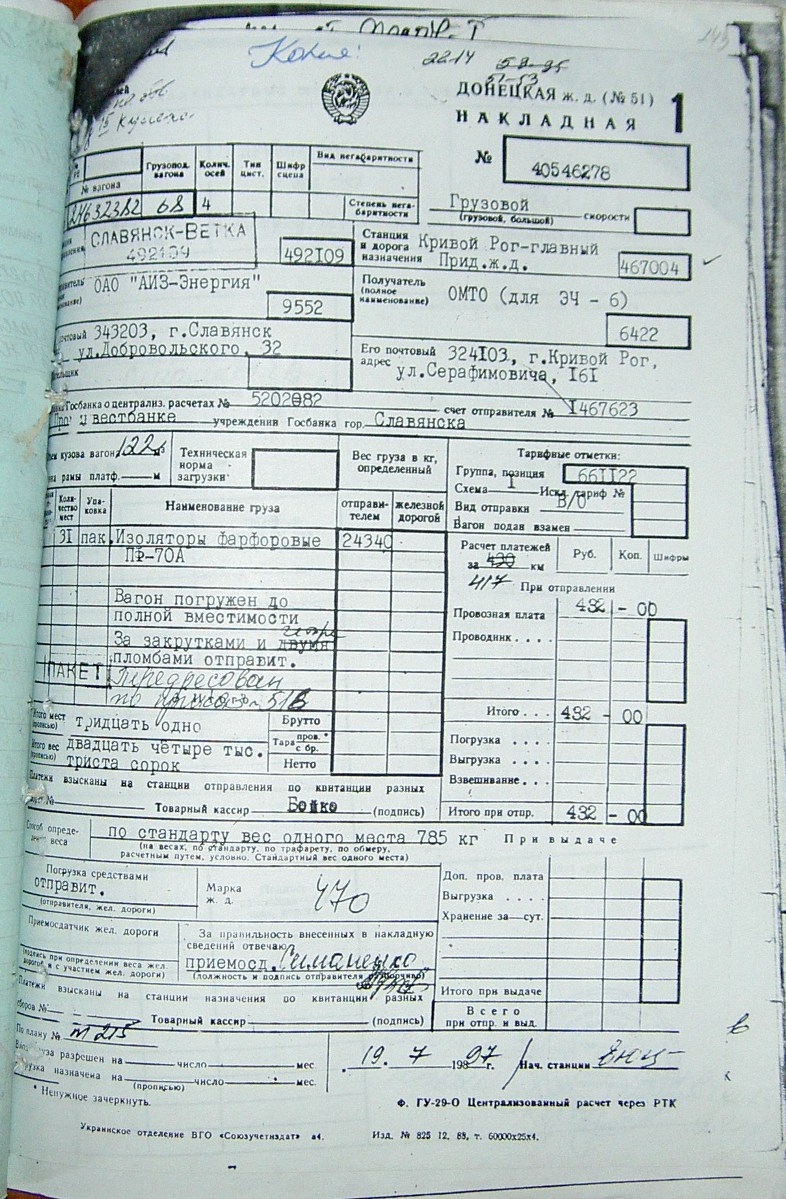 Копия!
2214 58-95
51-53
ДОНЕЦКАЯ ж. д. (№ 51) 1
НАКЛАДНАЯ
№ 40546278
№ вагона
Грузопод. вагона
Колич. осей
Тип цист.
Шифр сцепа
Вид негабаритности
Степень негабаритности
24632382 68 4
Грузовой
(грузовой, большой) скорости
СЛАВЯНСК-ВЕТКА
492109
492109
Станция и дорога назначения
Кривой Рог-главный
Прид.ж.д.
467004
ОАО "АИЗ-Энергия"
9552
Получатель (полное наименование)
ОМТО (для ЭЧ - 6)
6422
343203, г.Славянск
ул.Добровольского, 32
Его почтовый адрес
324103, г.Кривой Рог,
ул.Серафимовича, 161
Госбанка о централиз. расчетах № 5202082
счет отправителя № 1467623
учреждении Госбанка гор. Славянска
кузова вагона 122
рамы платф. м
Техническая норма загрузки
Вес груза в кг, определенный
отправителем
железной дорогой
Тарифные отметки:
Группа, позиция 661122
Схема 1 Искл. тариф №
Вид отправки В/О
Вагон подан взамен
Количество мест
Упаковка
Наименование груза
31 пак. Изоляторы фарфоровые 24340
ПФ-70А
Вагон погружен до
полной вместимости
За закрутками и двумя
пломбами отправит.
ПАКЕТ
Переадресован
Расчет платежей
за 430 км
417
Руб. Коп. Шифры
При отправлении
Провозная плата 432 - 00
Проводник . . . .
Итого . . . 432 - 00
Погрузка . . . .
Выгрузка . . . .
Взвешивание . . . .
Итого при отпр. 432 - 00
Итого мест (прописью) тридцать одно
Итого вес (прописью) двадцать четыре тыс.
триста сорок
Брутто
Тара пров. * с бр.
Нетто
Платежи взысканы на станции отправления по квитанции разных
Товарный кассир Бойко (подпись)
Способ определения веса
по стандарту вес одного места 785 кг
(на весах, по стандарту, по трафарету, по обмеру,
расчетным путем, условно. Стандартный вес одного места)
При выдаче
Погрузка средствами
отправит.
(отправителя, жел. дороги)
Марка ж. д. 470
Доп. пров. плата
Выгрузка . . . .
Хранение за сут.
Приемосдатчик жел. дороги
(подпись при определении веса жел. дорогой и с участием жел. дороги)
За правильность внесенных в накладную
сведений отвечаю
приемосд. Симаненко
(должность и подпись отправителя разборчиво)
Итого при выдаче
Всего
при отпр. и выд.
Платежи взысканы на станции назначения по квитанции разных
сборов №
Товарный кассир (подпись)
По плану № м 215
Ввоз груза разрешен на число мес.
Погрузка назначена на число мес.
(прописью)
19. 7 1997 г.
Нач. станции
* Ненужное зачеркнуть.
Ф. ГУ-29-О Централизованный расчет через РТК
Украинское отделение ВГО «Союзучетиздат» а4.
Изд. № 825 12. 89, т. 60000х25х4.